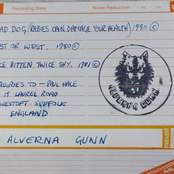 Recording Date
Noise Reduction
AD DOG (RABIES CAN DAMAGE YOUR HEALTH) 1980 ©
ST OR WEST. 1980 ©
E BITTEN TWICE SHY. 1981 ©
TO - PAUL HALE
LAUREL ROAD
SUFFOLK
ENGLAND
ALVERNA GUNN
ALVERNA GUNN